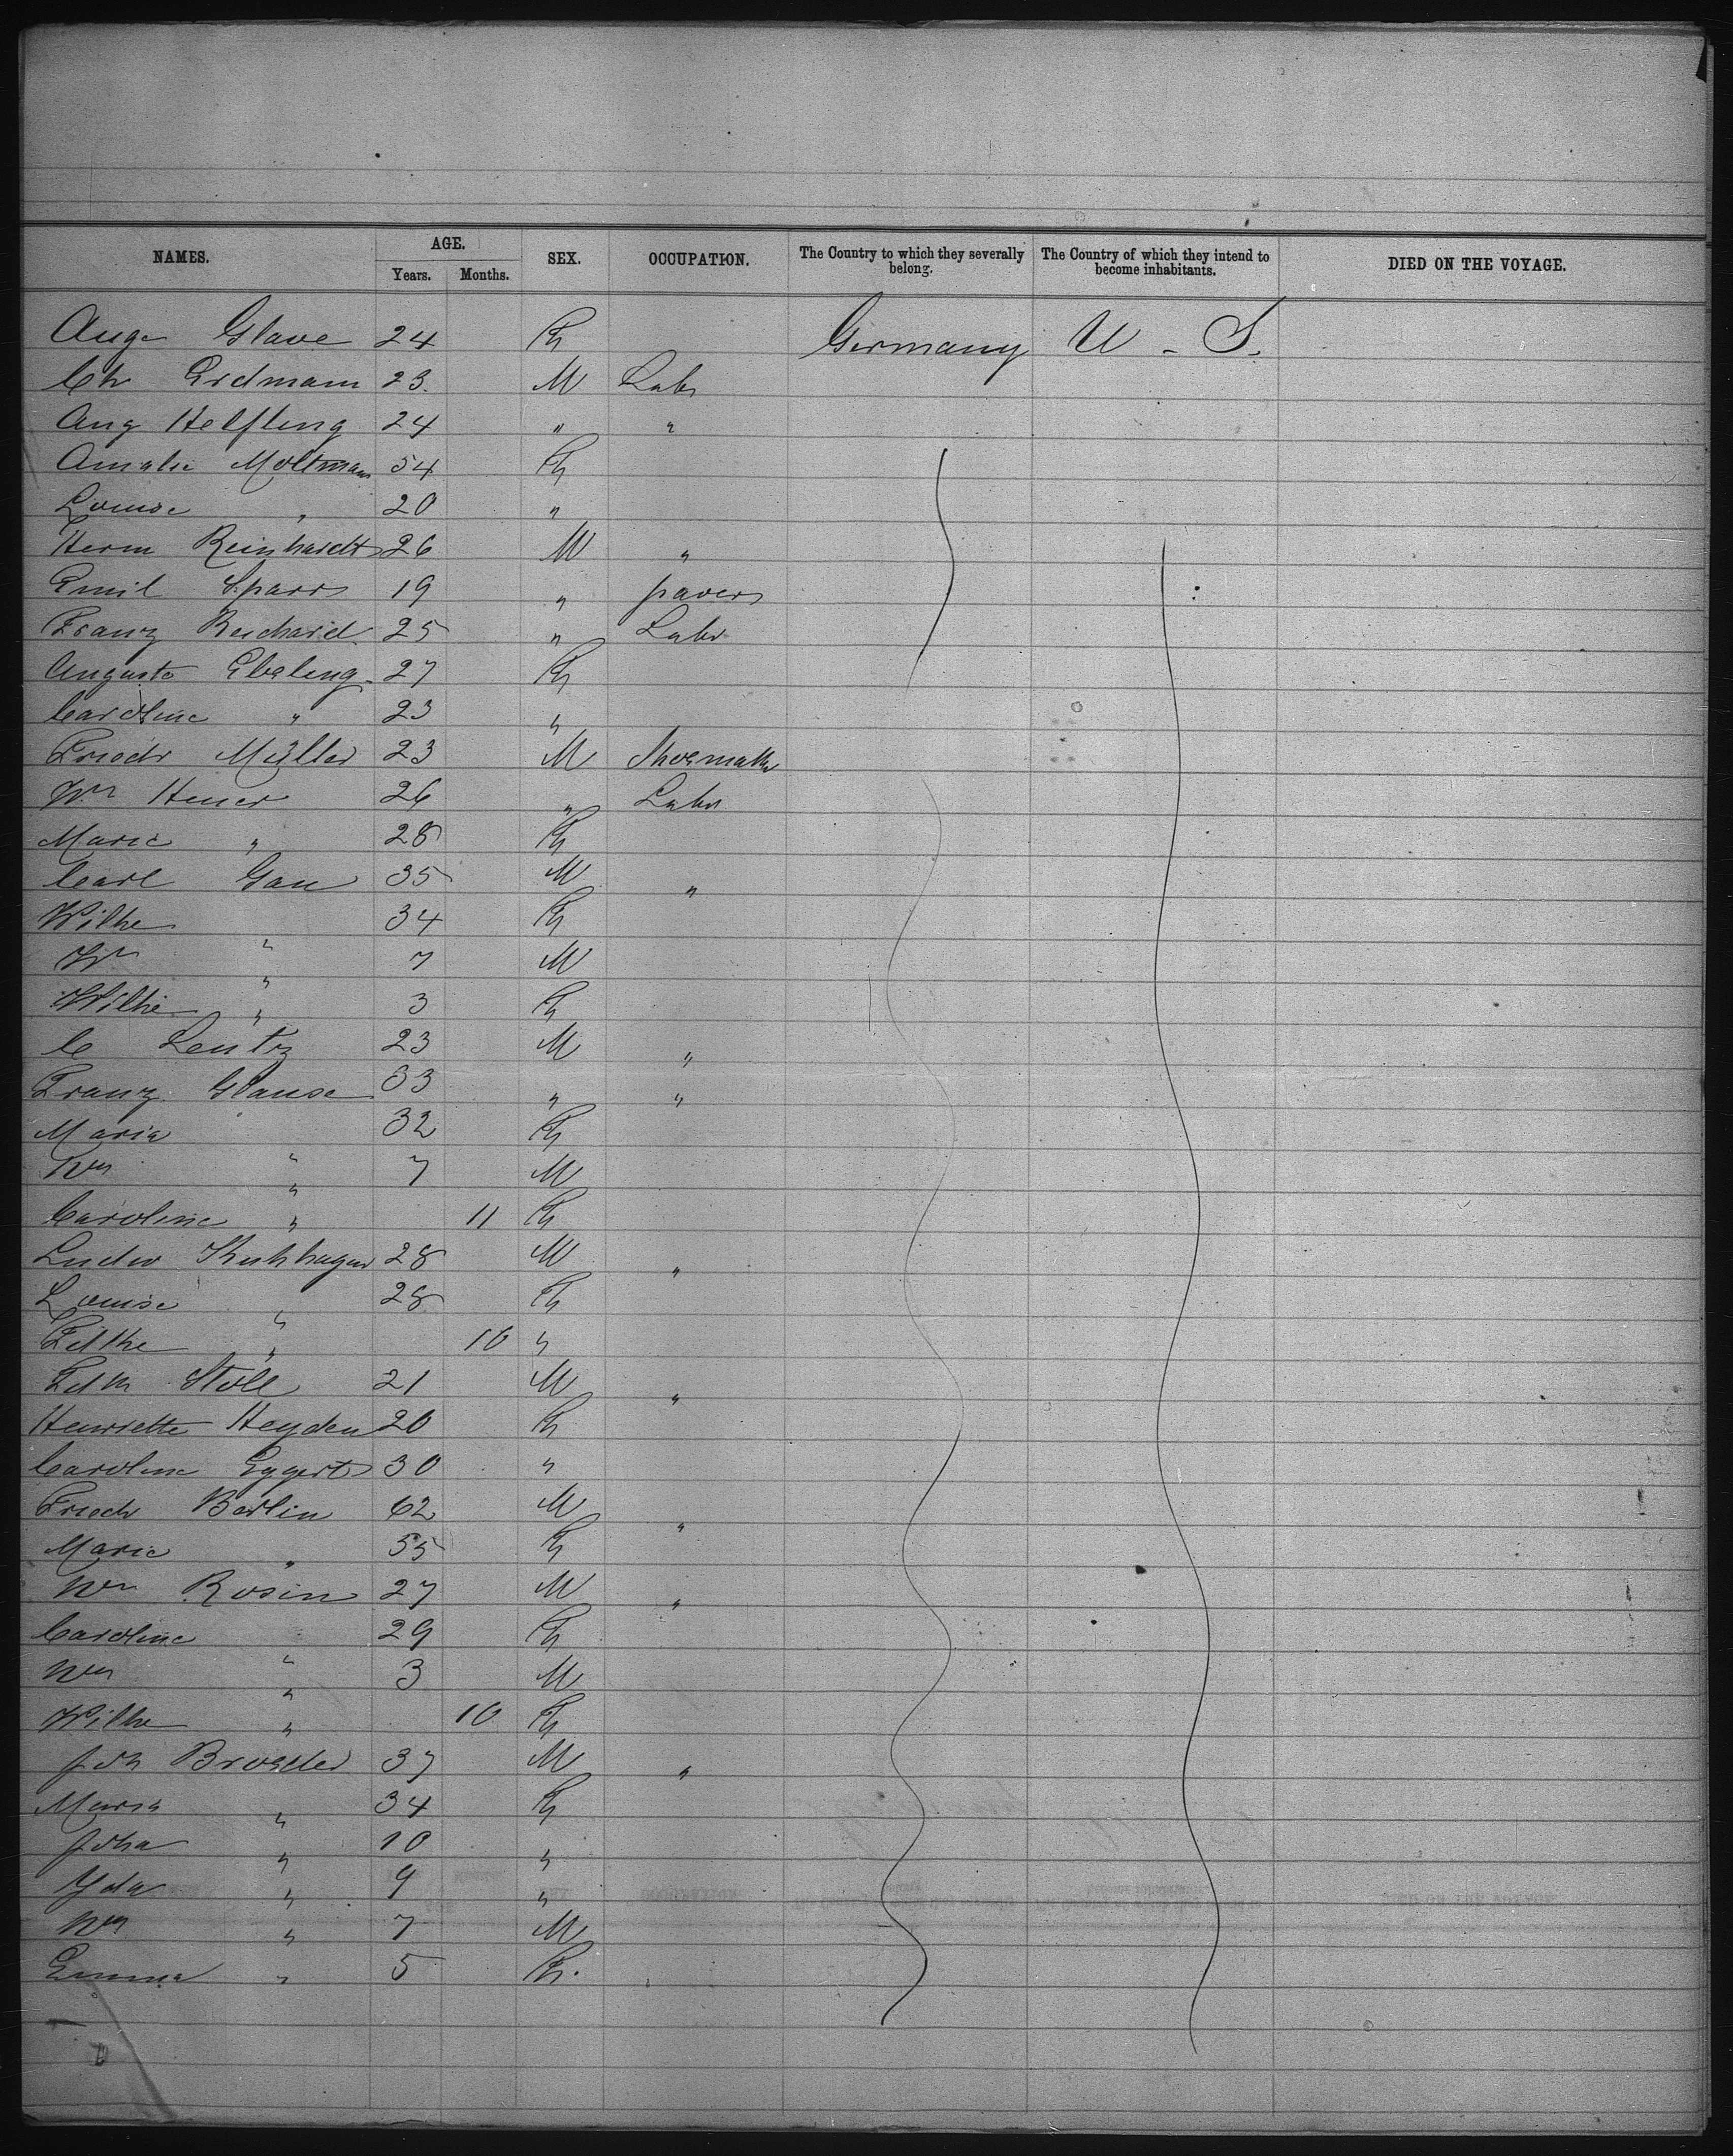 NAMES. AGE. SEX. OCCUPATION. The Country to which they severally belong. The Country of which they intend to become inhabitants. DIED ON THE VOYAGE.
Years. Months.
Auge Glave 24 Fh Germany U - S.
Ch Erdmann 23. M Labr
Aug Helfling 24 " "
Amalie Moltmann 54 Fh
Louise " 20 "
Herm Reinhardt 26 M "
Emil Sparr 19 " paver
Franz Reichard 25 " Labr
Auguste Ebeling 27 Fh
Caroline " 23 "
Friedr Müller 23 M Shoemakr
Wm Heuer 26 " Labr
Marie " 28 Fh
Carl Gau 35 M "
Wilhe " 34 Fh
Wm " 7 M
Wilhe " 3 Fh
C Lentz 23 M "
Franz Glause 33 " "
Maria " 32 Fh
Wm " 7 M
Caroline " 11 Fh
Ludw Kuhhagen 28 M "
Louise " 28 Fh
" 10 "
Stoll 21 M "
Henriette Heyden 20 Fh
Caroline Eggert 30 "
Friedr Berlin 62 M "
Marie " 55 Fh
Wm Rosin 27 M "
Caroline " 29 Fh
Wm " 3 M
Wilhe " 10 Fh
Joh Broeder 37 M "
Maria " 34 Fh
Joha " 10 "
Ida " 9 "
Wm " 7 M
Emma " 5 Fh.